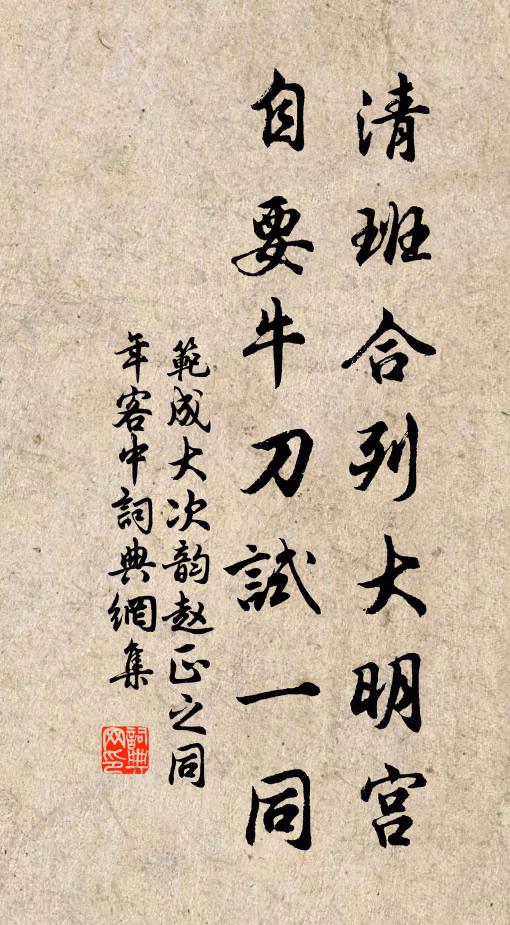 清班合列大明宫
自要牛刀試一同
範成大次韵赵正之同
年客中詞典網集
詞典
网印